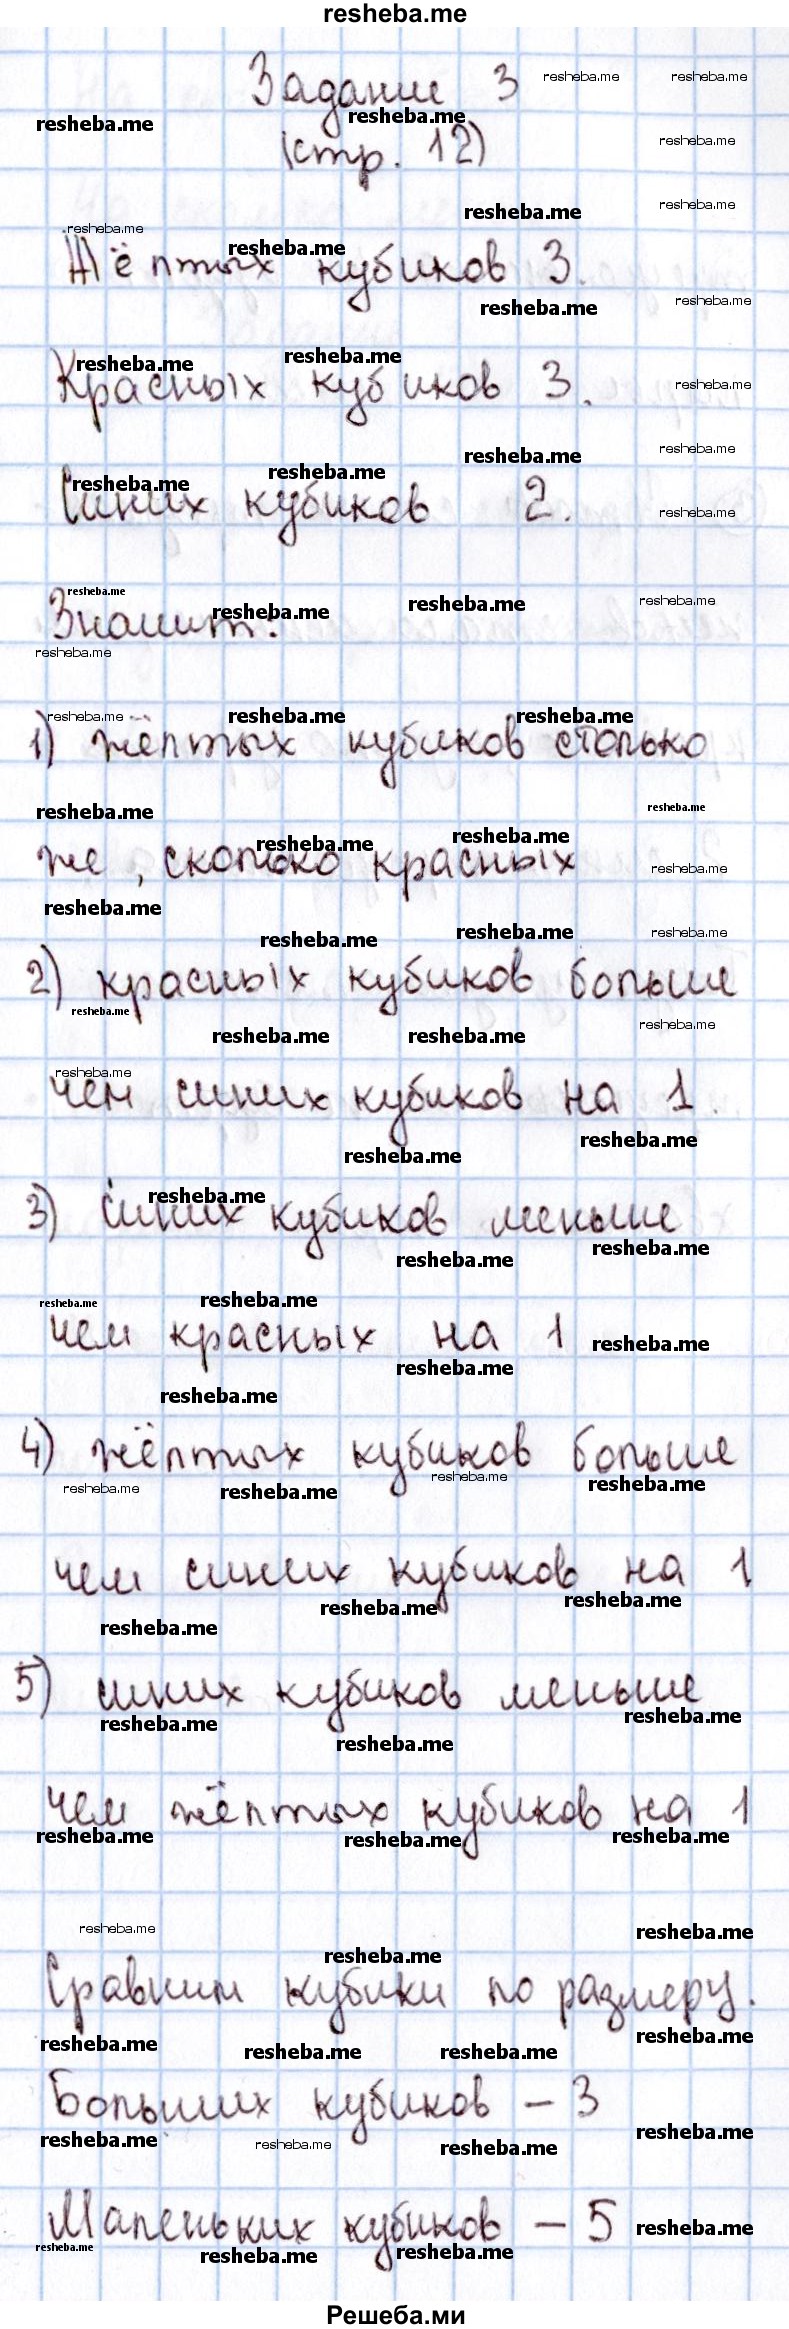 resheba.me
Задание 3
(стр. 12)
Жёлтых кубиков 3.
Красных кубиков 3.
Синих кубиков 2.
Значит:
1) жёлтых кубиков столько
же, сколько красных
2) красных кубиков больше
чем синих кубиков на 1.
3) Синих кубиков меньше
чем красных на 1
4) жёлтых кубиков больше
чем синих кубиков на 1
5) синих кубиков меньше
чем жёлтых кубиков на 1
Сравним кубики по размеру.
Больших кубиков – 3
Маленьких кубиков – 5
Решеба.ми